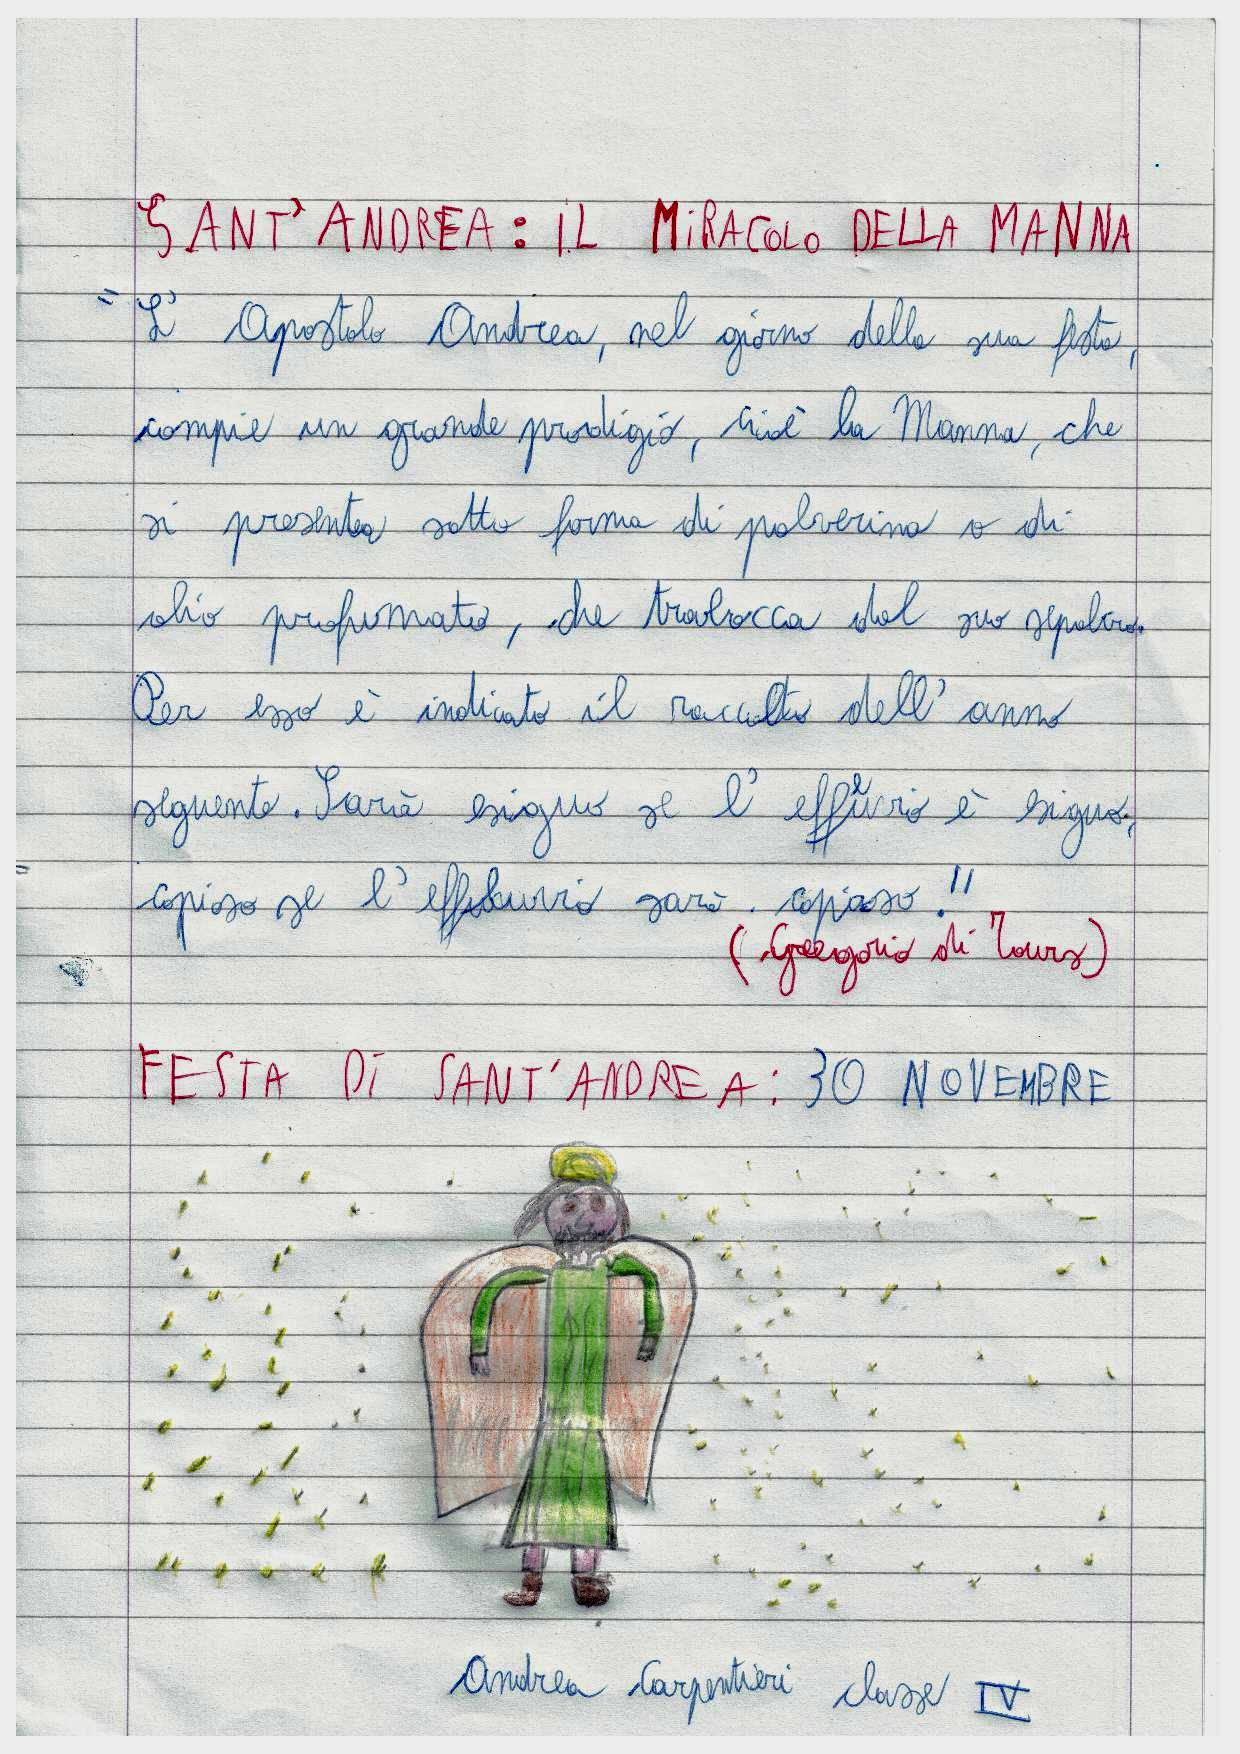 SANT'ANDREA: IL MIRACOLO DELLA MANNA
"L'Apostolo Andrea, nel giorno della sua festa,
compie un grande prodigio, cioè la Manna, che
si presenta sotto forma di polverina o di
olio profumato, che trabocca dal suo sepolcro.
Per esso è indicato il raccolto dell'anno
seguente. Sarà esiguo se l'effluvio è esiguo,
copioso se l'effluvio sarà copioso!"
(Gregorio di Tours)
FESTA Di SANT'ANDREA: 30 NOVEMBRE
Andrea Carpentieri classe IV